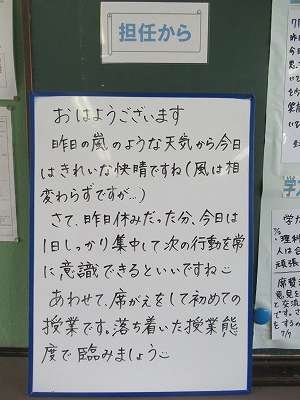 担任から
おはようございます
昨日の嵐のような天気から今日
はきれいな快晴ですね(風は相
変わらずですが…)
さて、昨日休みだった分、今日は
1日しっかり集中して次の行動を常
に意識できるといいですね
あわせて、席がえをして初めての
授業です。落ち着いた授業態
度で臨みましょう